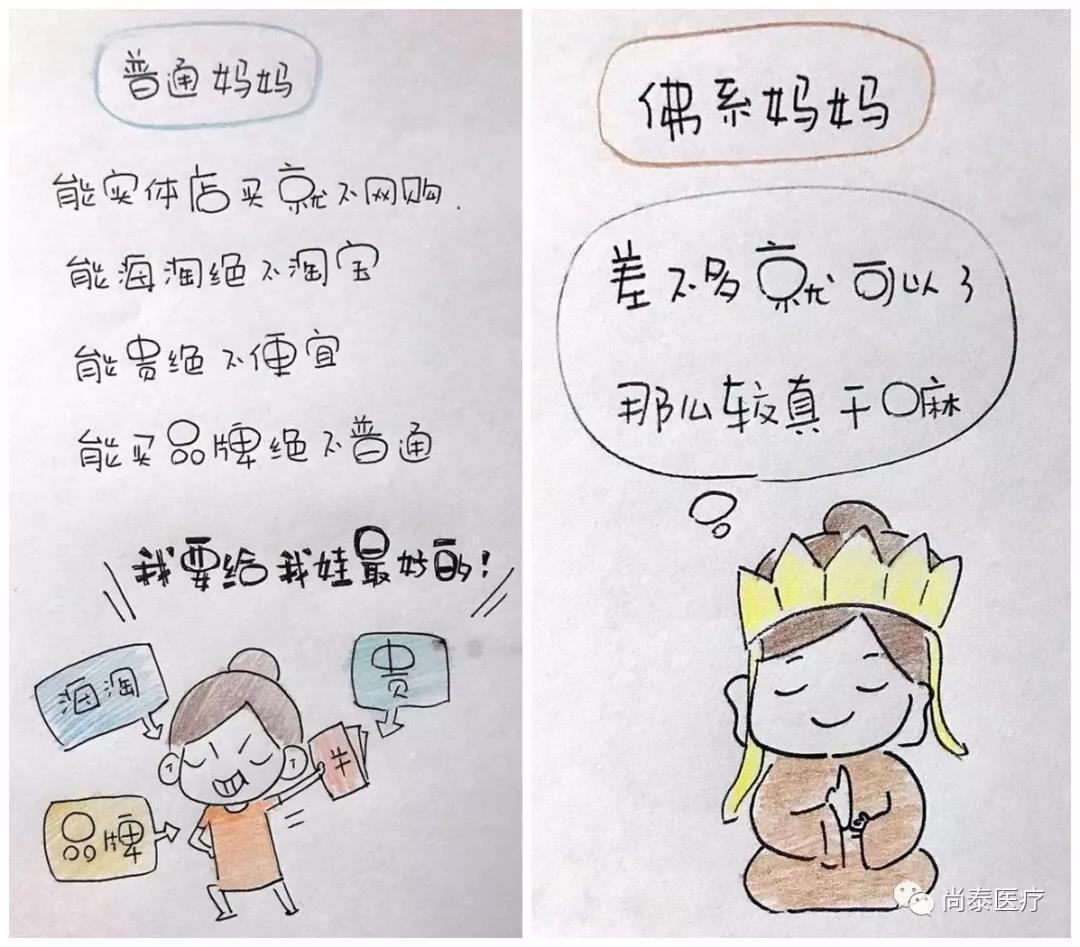 普通妈妈
能实体店买就不网购.
能海淘绝不淘宝
能贵绝不便宜
能买品牌绝不普通
我要给我娃最好的!
海淘
贵
品牌
佛系妈妈
差不多就可以了
那么较真干嘛
尚泰医疗